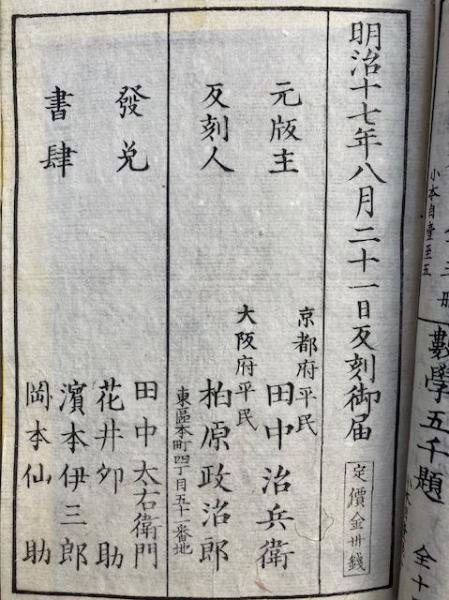 明治十七年八月二十一日反刻御届
定價金卅錢
元版主
京都府平民
田中治兵衛
反刻人
大阪府平民
柏原政治郎
東區本町四丁目五十一番地
發兌
書肆
田中太右衛門
花井卯助
濱本伊三郎
岡本仙助
三冊
小本自壹至五
數學五千題
全十